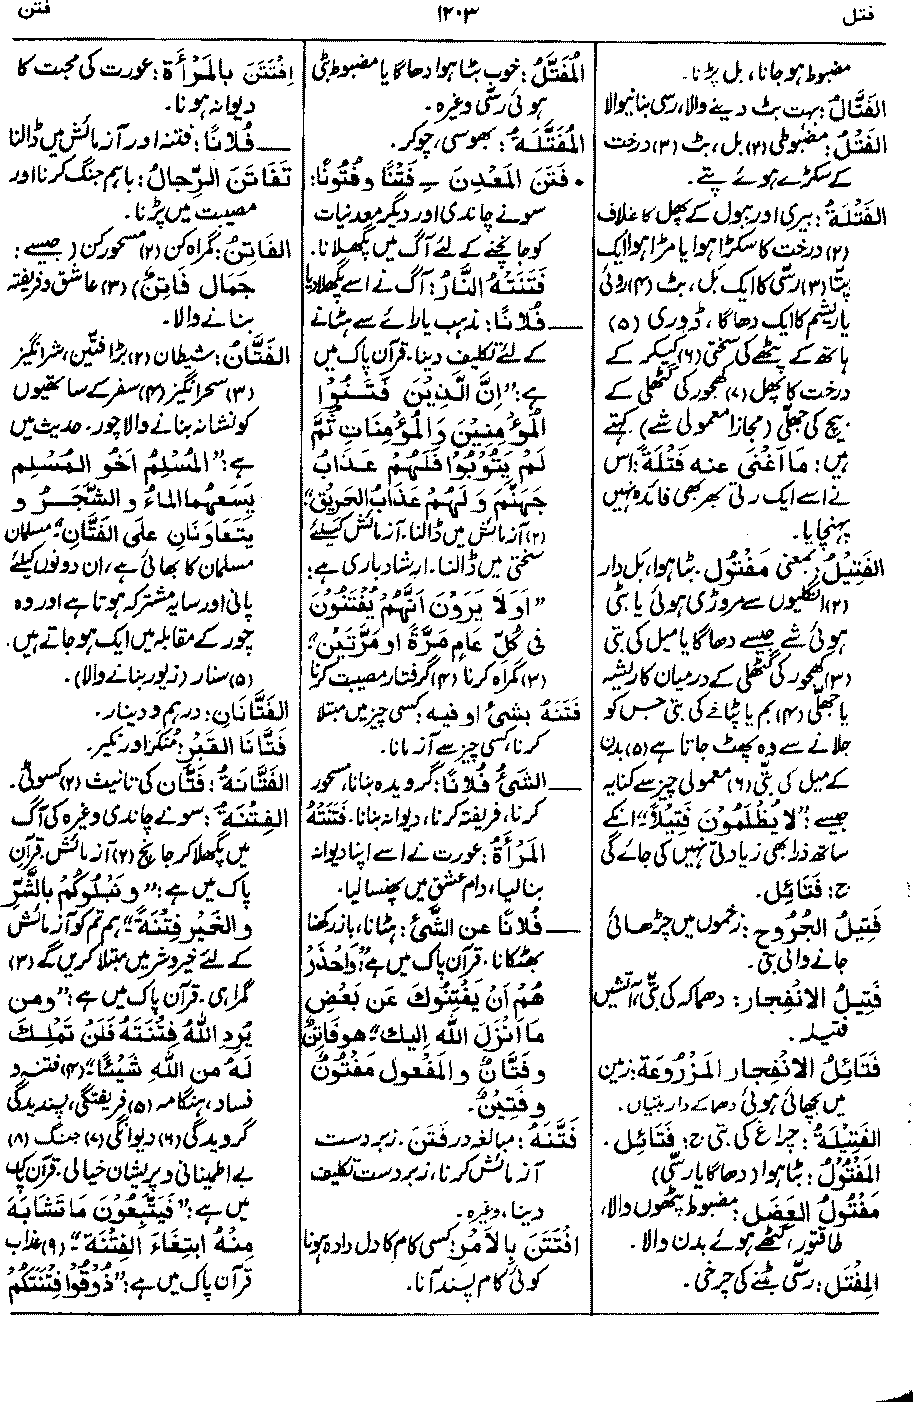 فتل
۱۲۰۳
فتن
مضبوط ہو جانا، بل پڑنا۔
الفَتَّالُ: بہت بٹ دینے والا، رسی بنانیوالا
الفَتْلُ: مضبوطی (۲) بل، بٹ (۳) درخت
کے سکڑے ہوئے پتے۔
الفَتْلَةُ: بیری اور ببول کے پھل کا غلاف
(۲) درخت کا سکڑا ہوا یا مڑا ہوا ایک
پتا (۳) رسّی کا ایک بَل، بٹ (۴) روئی
یا ریشم کا ایک دھاگا، ڈوری (۵)
ہاتھ کے پٹھے کی سختی (۶) کیکر کے
درخت کا پھل (۷) کھجور کی گٹھلی کے
بیچ کی جھلّی (مجازاً معمولی شے) کہتے
ہیں: مَا أغْنَى عنه فَتْلَةً: اس
نے اسے ایک رتی بھر بھی فائدہ نہیں
پہنچایا۔
الفَتِيْلُ: بمعنی مَفْتُول۔ بٹا ہوا، بَل دار
(۲) انگلیوں سے مروڑی ہوئی یا بٹی
ہوئی شے جیسے دھاگا یا میل کی بتی
(۳) کھجور کی گٹھلی کے درمیان کا ریشہ
یا جھلّی (۴) بم یا پٹاخے کی بتی جس کو
جلانے سے وہ پھٹ جاتا ہے (۵) بدن
کے میل کی بتّی (۶) معمولی چیز سے کنایہ
جیسے: "لا يُظْلَمُوْنَ فَتِيْلاً" انکے
ساتھ ذرا بھی زیادتی نہیں کی جائے گی
ج: فَتَائِل۔
فَتِيْلُ الجُرُوح: زخموں میں چڑھائی
جانے والی بتی۔
فَتِيْلُ الانْفِجار: دھماکہ کی بتّی، آتشیں
فتیلہ۔
فَتَائِلُ الانْفِجار المَزْرُوعَة: زمین
میں بچھائی ہوئی دھماکے دار بتیاں۔
الفَتِيْلَةُ: چراغ کی بتی ج: فَتَائِل۔
المَفْتُوْلُ: بٹا ہوا (دھاگا یا رسّی)
مَفْتُولُ العَضَل: مضبوط پٹھوں والا،
طاقتور، گٹھے ہوئے بدن والا۔
المِفْتَل: رسّی بٹنے کی چرخی۔
المُفَتَّلُ: خوب بٹا ہوا دھاگا یا مضبوط بٹی
ہوئی رسّی وغیرہ۔
المُفَتَّلَة: بھوسی، چوکر۔
• فَتَنَ المَعْدِنَ ـِ فَتْنًا وفُتُونًا:
سونے چاندی اور دیگر معدنیات
کو جانچنے کے لئے آگ میں پگھلانا۔
فَتَنَتْهُ النَّارُ: آگ نے اسے پگھلا دیا
ــــ فُلانًا: مذہب یا رائے سے ہٹانے
کے لئے تکلیف دینا۔ قرآن پاک میں
ہے: "إنَّ الَّذِيْنَ فَتَنُوا
المُؤْمِنِيْنَ وَالمُؤْمِنَاتِ ثُمَّ
لَمْ يَتُوْبُوْا فَلَهُمْ عَذَابُ
جَهَنَّمَ وَلَهُمْ عَذَابُ الحَرِيْق"
(۲) آزمائش میں ڈالنا۔ آزمائش کیلئے
سختی میں ڈالنا۔ ارشاد باری ہے:
"أوَلاَ يَرَوْنَ أنَّهُمْ يُفْتَنُوْنَ
فِى كُلِّ عَامٍ مَرَّةً أو مَرَّتَيْنِ"
(۳) گمراہ کرنا (۴) گرفتار مصیبت کرنا
فَتَنَهُ بشئ أو فيه: کسی چیز میں مبتلا
کرنا، کسی چیز سے آزمانا۔
ــــ الشئُ فُلانًا: گرویدہ بنانا، مسحور
کرنا، فریفتہ کرنا، دیوانہ بنانا۔ فَتَنَتْهُ
المَرْأةُ: عورت نے اسے اپنا دیوانہ
بنالیا، دام عشق میں پھنسا لیا۔
ــــ فُلانًا عن الشَّئ: ہٹانا، باز رکھنا
بھٹکانا۔ قرآن پاک میں ہے: "وَاحْذَرْ
هُمْ أنْ يَفْتِنُوكَ عَنْ بَعْضِ
مَا أنْزَلَ اللهُ إليكَ" هو فَاتِنٌ
وفَتَّانٌ والمَفْعول مَفْتُونٌ
وفَتِيْنٌ۔
فَتَّنَهُ: مبالغہ در فَتَنَ۔ زبردست
آزمائش کرنا، زبردست تکلیف
دینا، وغیرہ۔
افْتَتَنَ بِالأمْرِ: کسی کام کا دل دادہ ہونا
کوئی کام پسند آنا۔
افْتَتَنَ بِالمَرْأة: عورت کی محبت کا
دیوانہ ہونا۔
ــــ فُلانًا: فتنہ اور آزمائش میں ڈالنا
تَفَاتَنَ الرِّجالُ: باہم جنگ کرنا اور
مصیبت میں پڑنا۔
الفَاتِنُ: گمراہ کن (۲) مسحور کن (جیسے:
جَمَال فَاتِنٌ) (۳) عاشق و فریفتہ
بنانے والا۔
الفَتَّانُ: شیطان (۲) بڑا فتین، شر انگیز
(۳) سحر انگیز (۴) سفر کے ساتھیوں
کو نشانہ بنانے والا چور۔ حدیث میں
ہے: "المُسْلِمُ أخُو المُسْلِمِ
يَسَعُهما الماءُ والشَّجَرُ و
يَتَعَاوَنَانِ علَى الفَتَّانِ" مسلمان
مسلمان کا بھائی ہے، ان دونوں کیلئے
پانی اور سایہ مشترکہ ہوتا ہے اور وہ
چور کے مقابلہ میں ایک ہو جاتے ہیں۔
(۵) سنار (زیور بنانے والا)۔
الفَتَّانَانِ: درہم و دینار۔
فَتَّانَا القَبْرِ: مُنکر اور نکیر۔
الفَتَّانَةُ: فَتَّان کی تانیث (۲) کسوٹی۔
الفِتْنَةُ: سونے چاندی وغیرہ کی آگ
میں پگھلا کر جانچ (۲) آزمائش۔ قرآن
پاک میں ہے: "ونَبْلُوكُمْ بِالشَّرِّ
والخَيْرِ فِتْنَةً" ہم تم کو آزمائش
کے لئے خیر و شر میں مبتلا کریں گے (۳)
گمراہی۔ قرآن پاک میں ہے: "ومن
يُرِدِ اللهُ فِتْنَتَهُ فَلَنْ تَمْلِكَ
لَهُ من اللهِ شَيْئًا" (۴) فتنہ و
فساد، ہنگامہ (۵) فریفتگی، پسندیدگی
گرویدگی (۶) دیوانگی (۷) جنگ (۸)
بے اطمینانی و پریشان خیالی۔ قرآن پاک
میں ہے: "فَيَتَّبِعُوْنَ مَا تَشَابَهَ
مِنْهُ ابْتِغَاءَ الفِتْنَة" (۹) عذاب
قرآن پاک میں ہے: "ذُوْقُوا فِتْنَتَكُمْ